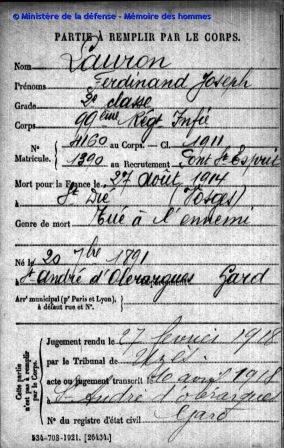 © Ministère de la défense - Mémoire des hommes
PARTIE À REMPLIR PAR LE CORPS.
Nom Lauron
Prénoms Ferdinand Joseph
Grade 2e classe
Corps 99ème Régt Infie
N° 4160 au Corps. — Cl. 1911
Matricule. 1390 au Recrutement Pont St Esprit
Mort pour la France le 27 août 1914
à St Dié (Vosges)
Genre de mort Tué à l'ennemi
Né le 20 7bre 1891
à St André d'Olérargues Département Gard
Arrt municipal (pr Paris et Lyon),
à défaut rue et N°.
Cette partie n'est pas à remplir par le Corps.
Jugement rendu le 27 février 1918
par le Tribunal de Uzès
acte ou jugement transcrit le 10 avril 1918
à St André d'olérargues
Gard
N° du registre d'état civil
534-708-1921. [26434.]